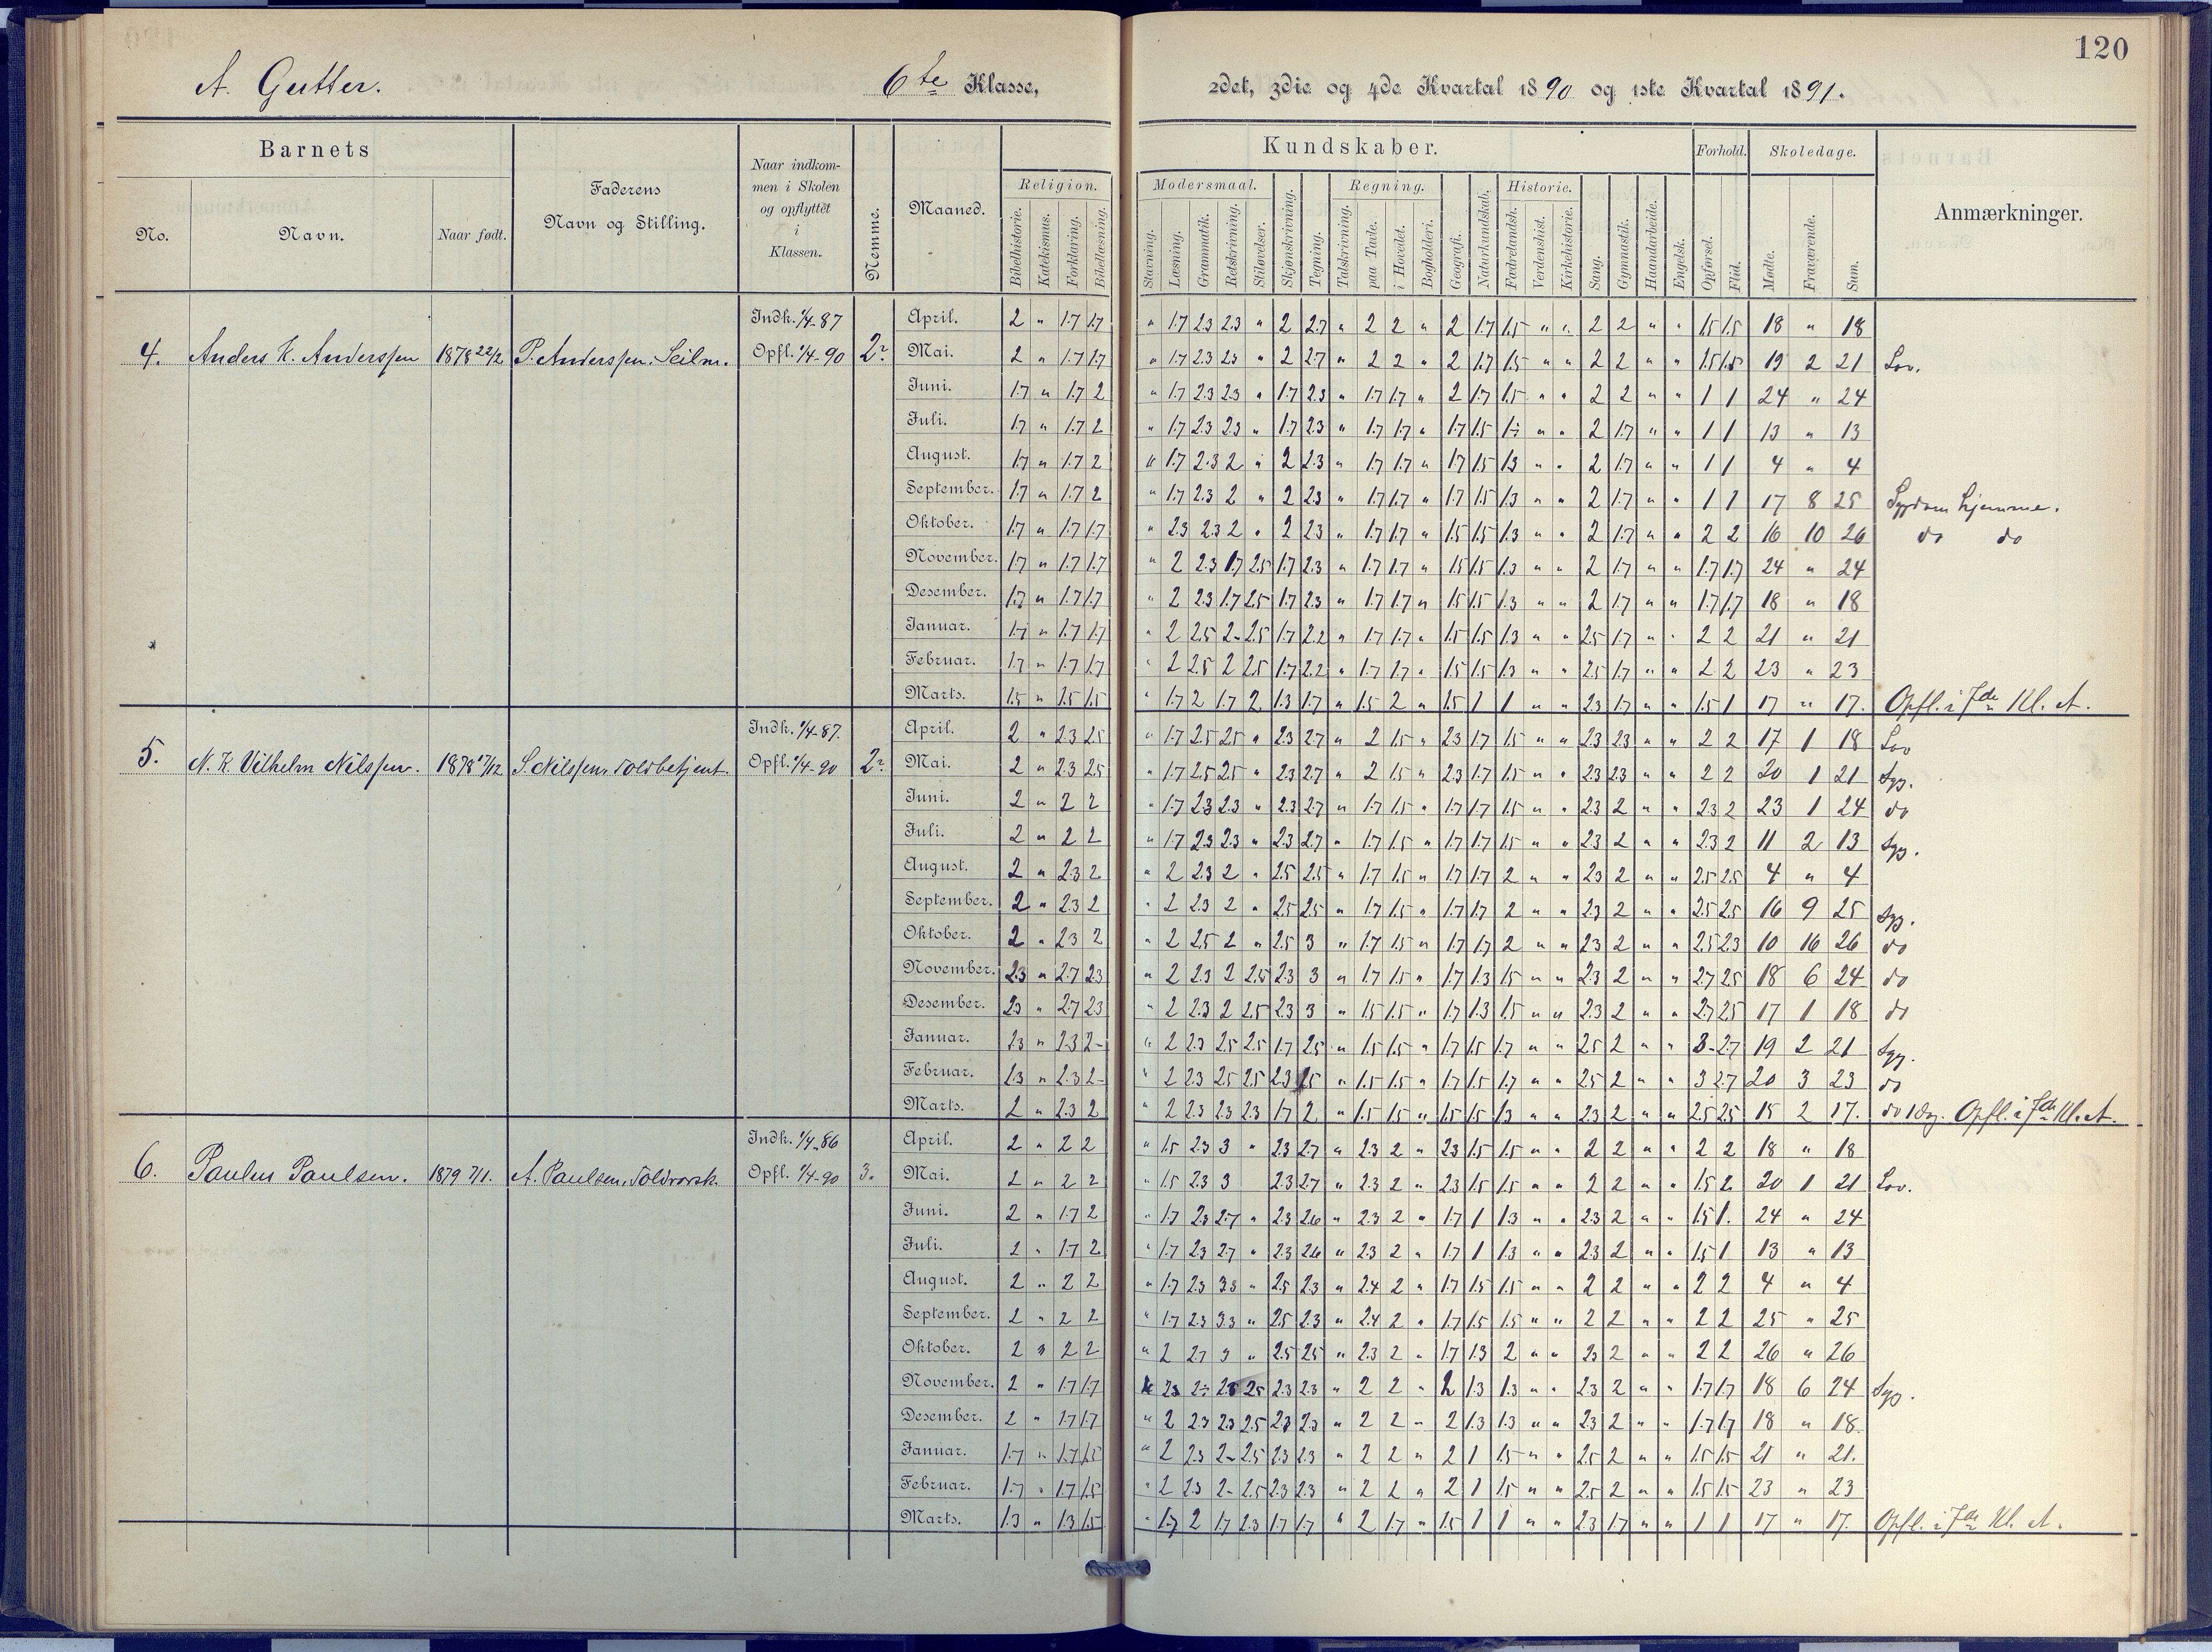 120
A. Gutter. 6te Klasse, 2det, 3die og 4de Kvartal 1890 og 1ste Kvartal 1891.
Barnets
No. Navn. Naar født.
Faderens Navn og Stilling.
Naar indkom-
men i Skolen
og opflyttet
i
Klassen.
Nemme.
Maaned.
Kundskaber.
Religion.
Bibelhistorie. Katekismus. Forklaring. Bibellæsning.
Modersmaal.
Stavning. Læsning. Grammatik. Retskrivning. Stiløvelser.
Skjønskrivning. Tegning.
Regning.
Talskrivning. paa Tavle. i Hovedet. Bogholderi.
Geografi. Naturkundskab.
Historie.
Fædrelandsh. Verdenshist. Kirkehistorie.
Sang. Gymnastik. Haandarbeide. Engelsk.
Forhold.
Opførsel. Flid.
Skoledage.
Mødte. Fraværende. Sum.
Anmærkninger.
4. Anders K. Anderssen 1878 22/2 P. Anderssen, Seilm. Indk. 1/4-87 Opfl. 1/4-90 2?
April. 2 " 1.7 1.7 " 1.7 2.3 2.3 " 2 2.7 " 2 2 " 2 1.7 1.5 " " 2 2 " " 1.5 1.5 18 " 18
Mai. 2 " 1.7 1.7 " 1.7 2.3 2.3 " 2 2.7 " 2 2 " 2 1.7 1.5 " " 2 2 " " 1.5 1.5 19 2 21 Lov.
Juni. 1.7 " 1.7 2 " 1.7 2.3 2.3 " 1.7 2.3 " 1.7 1.7 " 2 1.7 1.5 " " 2 2 " " 1 1 24 " 24
Juli. 1.7 " 1.7 2 " 1.7 2.3 2.3 " 1.7 2.3 " 1.7 1.7 " 1.7 1.5 " " 2 1.7 " " 1 1 13 " 13
August. 1.7 " 1.7 2 " 1.7 2.3 2 " 2 2.3 " 1.7 1.7 " 1.7 1.5 1.3 " " 2 1.7 " " 1 1 4 " 4
September. 1.7 " 1.7 2 " 1.7 2.3 2 " 2 2.3 " 1.7 1.7 " 1.7 1.5 1.3 " " 2 1.7 " " 1 1 17 8 25 Sygdom hjemme.
Oktober. 1.7 " 1.7 1.7 " 2.3 2.3 2 " 2 2.3 " 1.7 1.7 " 1.5 1.5 1.3 " " 2 1.7 " " 2 2 16 10 26 do do
November. 1.7 " 1.7 1.7 " 2 2.3 1.7 2.5 1.7 2.3 " 1.7 1.7 " 1.5 1.5 1.3 " " 2 1.7 " " 1.7 1.7 24 " 24
Desember. 1.7 " 1.7 1.7 " 2 2.3 1.7 2.5 1.7 2.3 " 1.7 1.7 " 1.5 1.5 1.3 " " 2 1.7 " " 1.7 1.7 18 " 18
Januar. 1.7 " 1.7 1.7 " 2 2.5 2- 2.5 1.7 2.2 " 1.7 1.7 " 1.5 1.5 1.3 " " 2.5 1.7 " " 2 2 21 " 21
Februar. 1.7 " 1.7 1.7 " 2 2.5 2 2.5 1.7 2.2 " 1.7 1.7 " 1.5 1.5 1.3 " " 2.5 1.7 " " 2 2 23 " 23
Marts. 1.5 " 1.5 1.5 " 1.7 2 1.7 2. 1.3 1.7 " 1.5 2 " 1.5 1 1 " " 2.3 1.7 " " 1.5 1 17 " 17. Opfl. i 7de Kl. A.
5. N. K. Vilhelm Nilssen. 1878 17/12 S. Nilssen, Toldbetjent. Indk. 1/4-87. Opfl. 1/4-90 2?
April. 2 " 2.3 2.5 " 1.7 2.5 2.5 " 2.3 2.7 " 2 1.5 " 2.3 1.7 1.5 " " 2.3 2.3 " " 2 2 17 1 18 Lov
Mai. 2 " 2.3 2.5 " 1.7 2.5 2.5 " 2.3 2.7 " 2 1.5 " 2.3 1.7 1.5 " " 2.3 2.3 " " 2 2 20 1 21 Syg.
Juni. 2 " 2 2 " 1.7 2.3 2.3 " 2.3 2.7 " 1.7 1.5 " 1.7 1.7 1.5 " " 2.3 2 " " 2.3 2 23 1 24 do
Juli. 2 " 2 2 " 1.7 2.3 2.3 " 2.3 2.7 " 1.7 1.5 " 1.7 1.7 1.5 " " 2.3 2 " " 2.3 2 11 2 13 Syg.
August. 2 " 2.3 2 " 2 2.3 2 " 2.5 2.5 " 1.7 1.5 " 1.7 1.7 2 " " 2.3 2 " " 2.5 2.5 4 " 4
September. 2 " 2.3 2 " 2 2.3 2 " 2.5 2.5 " 1.7 1.5 " 1.7 1.7 2 " " 2.3 2 " " 2.5 2.5 16 9 25 Syg.
Oktober. 2 " 2.3 2 " 2 2.5 2 " 2.5 3 " 1.7 1.5 " 1.7 1.7 2 " " 2.3 2 " " 2.5 2.3 10 16 26 do
November. 2.3 " 2.7 2.3 " 2 2.3 2 2.5 2.3 3 " 1.7 1.5 " 1.7 1.3 1.5 " " 2.3 2 " " 2.7 2.5 18 6 24 do
Desember. 2.3 " 2.7 2.3 " 2 2.3 2 2.5 2.3 3 " 1.5 1.5 " 1.7 1.3 1.5 " " 2.3 2 " " 2.7 2.5 17 1 18 do
Januar. 2.3 " 2.3 2- " 2 2.3 2.5 2.5 1.7 2.5 " 1.5 1.5 " 1.7 1.5 1.7 " " 2.5 2 " " 3- 2.7 19 2 21 Syg.
Februar. 2.3 " 2.3 2- " 2 2.3 2.5 2.5 2.3 " 1.5 1.5 " 1.7 1.5 1.7 " " 2.5 2 " " 3 2.7 20 3 23 do
Marts. 2 " 2.3 2 " 2 2.3 2.3 2.3 1.7 2 " 1.5 1.5 " 1.5 1.5 1.3 " " 2.3 2 " " 2.5 2.5 15 2 17. do 1 Dag. Opfl. i 7de Kl. A.
6. Paulus Paulsen. 1879 7/1. A. Paulsen, Toldrorsk. Indk. 1/4-86 Opfl. 1/4-90 3.
April. 2 " 2 2 " 1.5 2.3 3 " 2.3 2.7 " 2.3 2 " 2.3 1.5 1.5 " " 2 2 " " 2 2 18 " 18
Mai. 2 " 2 2 " 1.5 2.3 3 2.3 2.7 " 2.3 2 " 2.3 1.5 1.5 " " 2 2 " " 1.5 2 20 1 21 Lov.
Juni. 2 " 1.7 2 " 1.7 2.3 2.7 " 2.3 2.6 " 2.3 2 " 1.7 1 1.3 " " 2.3 2 " " 1.5 1. 24 " 24
Juli. 2 " 1.7 2 " 1.7 2.3 2.7 " 2.3 2.6 " 2.3 2 " 1.7 1 1.3 " " 2.3 2 " " 1.5 1 13 " 13
August. 2 " 2 2 " 1.7 2.3 3.3 " 2.5 2.3 " 2.4 2 " 1.7 1.5 1.5 " " 2 2 " " 2 2 4 " 4
September. 2 " 2 2 " 1.7 2.3 3.3 " 2.5 2.3 " 2.4 2 " 1.7 1.5 1.5 " " 2 2 " " 2 2 25 " 25
Oktober. 2 " 2 2 " 2 2.7 3 " 2.5 2.5 " 2.3 2 " 1.7 1.3 2 " " 2.3 2 " " 2 2 26 " 26
November. 2 " 1.7 1.7 2.3 2.5 2.3 2.3 " 2 2 " 2 1.3 1.3 " " 2.3 2 " " 1.7 1.7 18 6 24 Syg.
Desember. 2 " 1.7 1.7 " 2 2.3 2.3 2.5 2.3 2.3 " 2 2 " 2 1.3 1.3 " " 2.3 2 " " 1.7 1.7 18 " 18.
Januar. 1.7 " 1.7 1.5 " 2 2.3 2- 2.5 2.3 2.3 " 2 2 " 2 1 1.5 " " 2.5 2 " " 1.5 1.5 21 " 21.
Februar. 1.7 " 1.7 1.5 " 2 2.3 2- 2.5 2.3 2.3 " 2 2 " 2 1 1.5 " " 2.5 2 " " 1.5 1.5 23 " 23
Marts. 1.3 " 1.3 1.5 " 1.7 2 1.7 2.3 1.7 1.7 " 2 1.7 " 1.5 1 1 " " 2.3 1.7 " " 1 1 17 " 17. Opfl. i 7de Kl. A.